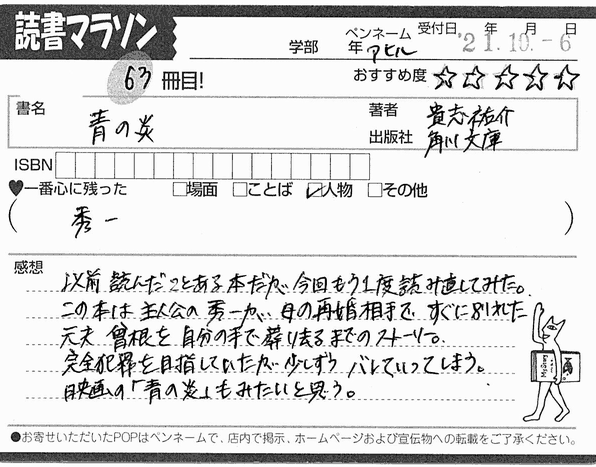 読書マラソン
学部 年 ペンネーム アヒル 受付日 年 月 日 '21.10.-6
63 冊目! おすすめ度 ☆☆☆☆☆
書名 青の炎 著者 貴志祐介
出版社 角川文庫
ISBN
♥一番心に残った □場面 □ことば ☑人物 □その他
( 秀一 )
感想
以前 読んだことある本だが、今回もう1度読み直してみた。
この本は主人公の秀一が、母の再婚相手で すぐに別れた
元夫 曾根を自分の手で葬り去るまでのストーリー。
完全犯罪を目指していたが少しずつ バレていってしまう。
映画の「青の炎」もみたいと思う。
●お寄せいただいたPOPはペンネームで、店内で掲示、ホームページおよび宣伝物への転載をご了承ください。